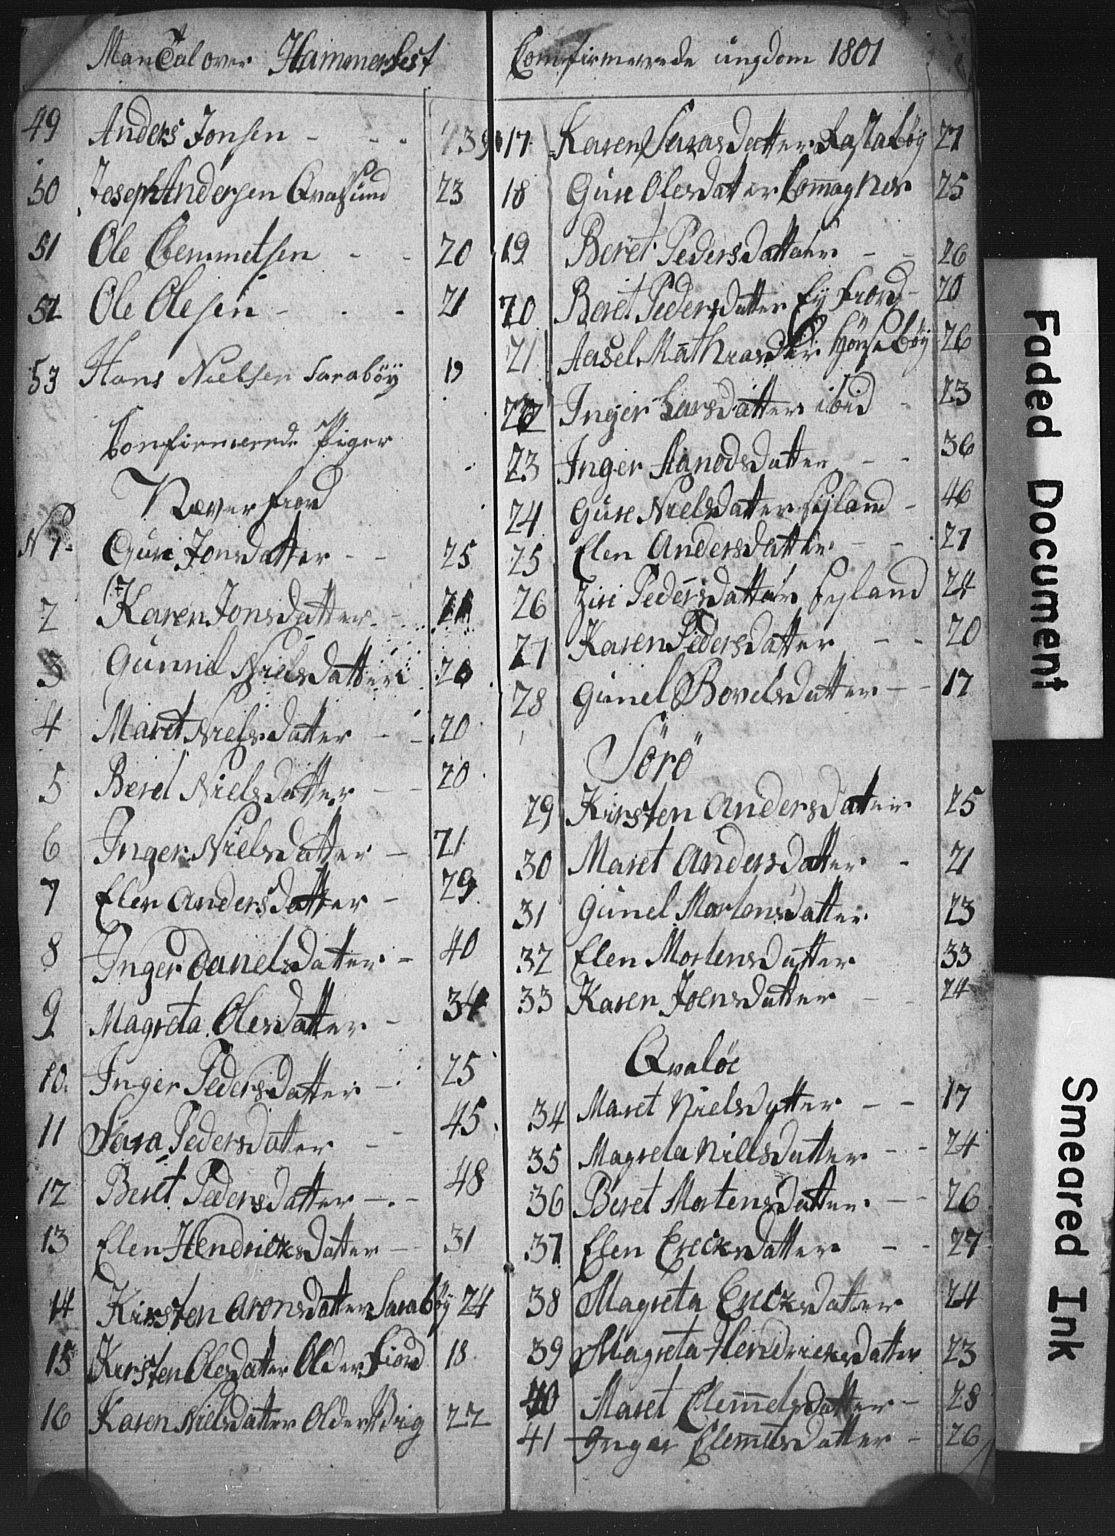 ManTal over Hammerfest
49 Anders Jonsen - - - 39
50 Joseph Andersen Qvalsund 23
51 Ole Clemmetsen - - 20
52 Ole Olesen - - - 21
53 Hans Nielsen Sarabÿ 19
Confirmerede Piger
Næverfiord
N 1. Guri Jonsdatter - - 25
2 Karen Jonsdatter - 21
3 Gunnil Nielsdatter 20
4 Maret Nielsdatter - - 20
5 Berel Nielsdatter - - 20
6 Inger Nielsdatter - 21
7 Elen Andersdatter - 29
8 Inger Danelsdatter - 40
9 Magreta Olesdatter - 34
10. Inger Pedersdatter - 25
11 Sara Pedersdatter - - 45
12 Beret Pedersdatter - - 48
13 Elen Hendricksdatter - 31
14 Kirsten Aronsdatter Sarabÿ 24
15 Kirsten Olesdatter Olderfiord 18
16 Karen Nielsdatter Oldervig 22
Comfirmerede ungdom 1801
17 Karen Sarasdatter 27
18 Gure Olesdatter Komagnes 25
19 Beret Pedersdatter - - 26
20 Beret Pedersdatter Eyfiord 20
21 Aasel Mathiasdtr 26
22 Inger Larsdatter ibid - 23
23 Inger Aanodsdatter - - 36
24 Gure Nielsdatter Sÿland - 46
25 Elen Andersdatter - - 27
26 Ziri Pedersdatter Sÿland 24
27 Karen Pedersdatter - - 20
28 Gunel Bovelsdatter - - 17
Sörö
29 Kirsten Andersdatter 25
30 Maret Andersdatter - 21
31 Gunel Mortensdatter 23
32 Elen Mortensdatter 33
33 Karen Joensdatter - 24
Qvaløe
34 Maret Nielsdatter - - 17
35 Magreta Nillsdatter - - 24
36 Beret Mortensdatter - - 26
37 Elen Ericksdatter - - 27
38 Magreta Ericksdatter 24
39 Magreta Hendricksdatter 23
40 Maret Clemetsdatter - 28
41 Inger Clemetsdatter - 26
Faded Document
Smeared Ink